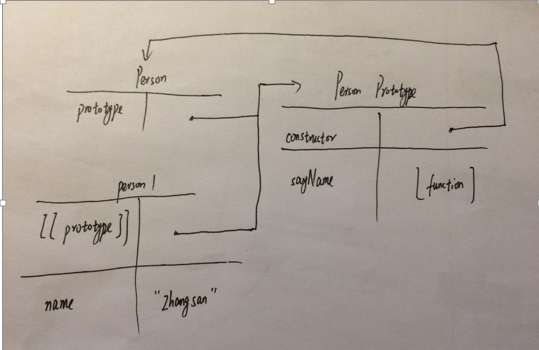 Person
prototype
Person Prototype
constructor
sayName
[function]
person 1
[[prototype]]
name
"Zhangsan"